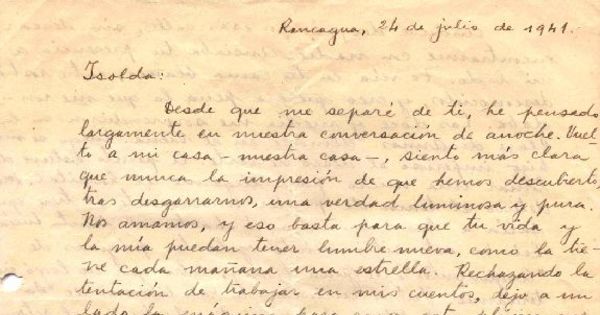 Rancagua, 24 de julio de 1941.
Isolda:
Desde que me separé de ti, he pensado
largamente en nuestra conversación de anoche. Vuel-
to a mi casa - nuestra casa -, siento más clara
que nunca la impresión de que hemos descubierto,
tras desgarrarnos, una verdad luminosa y pura.
Nos amamos, y eso basta para que tu vida y
la mía puedan tener lumbre nueva, como la tie-
ne cada mañana una estrella. Rechazando la
tentación de trabajar en mis cuentos, dejo a un
lado la máquina para